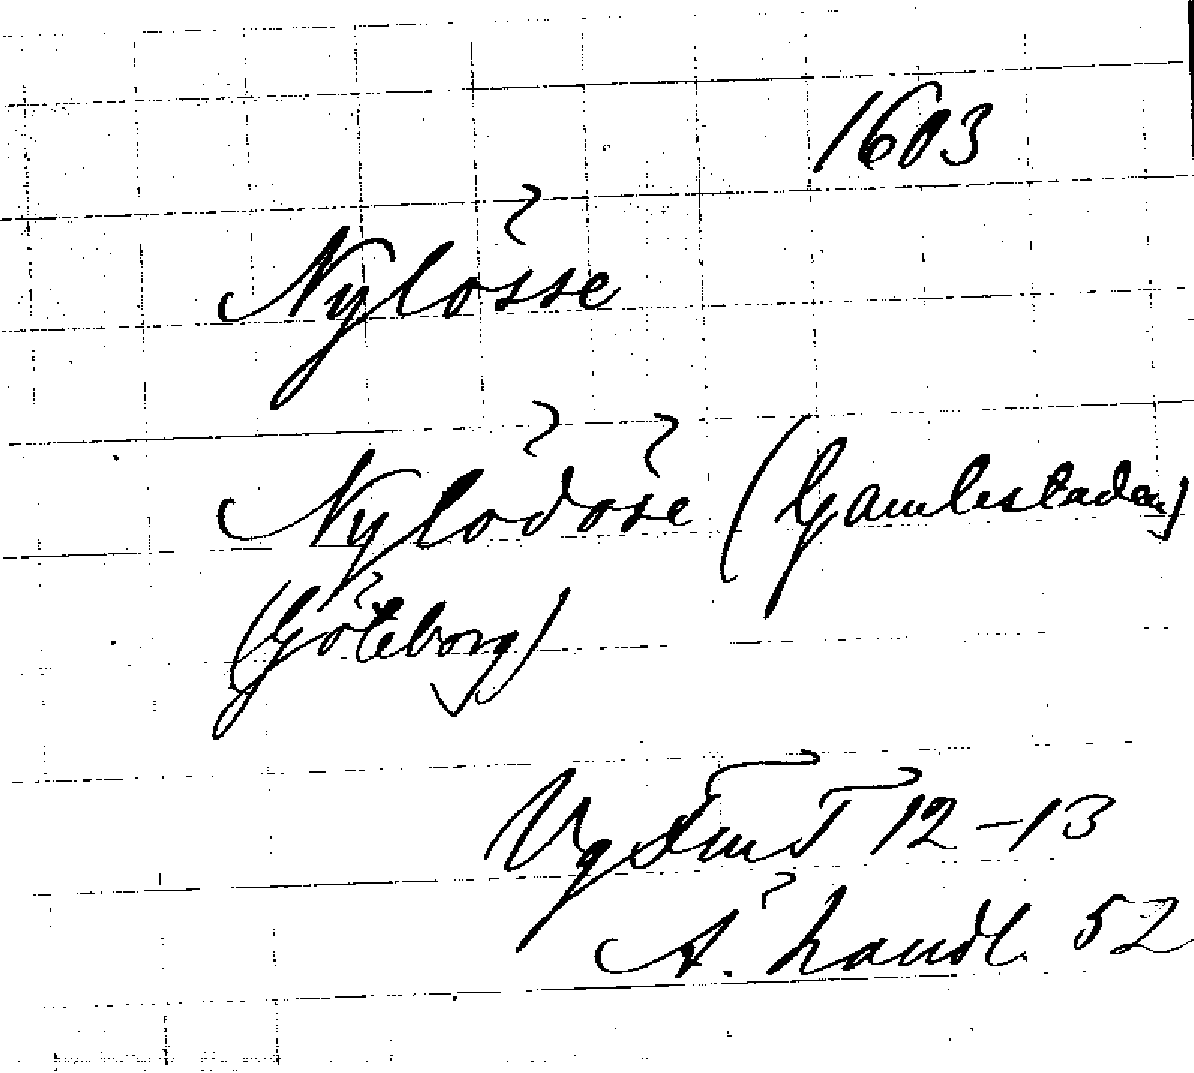 1603
Nylösse
Nylödöse (Gamlestaden)
(Göteborg)
Vg Fm T 12-13
Ä. handl. 52